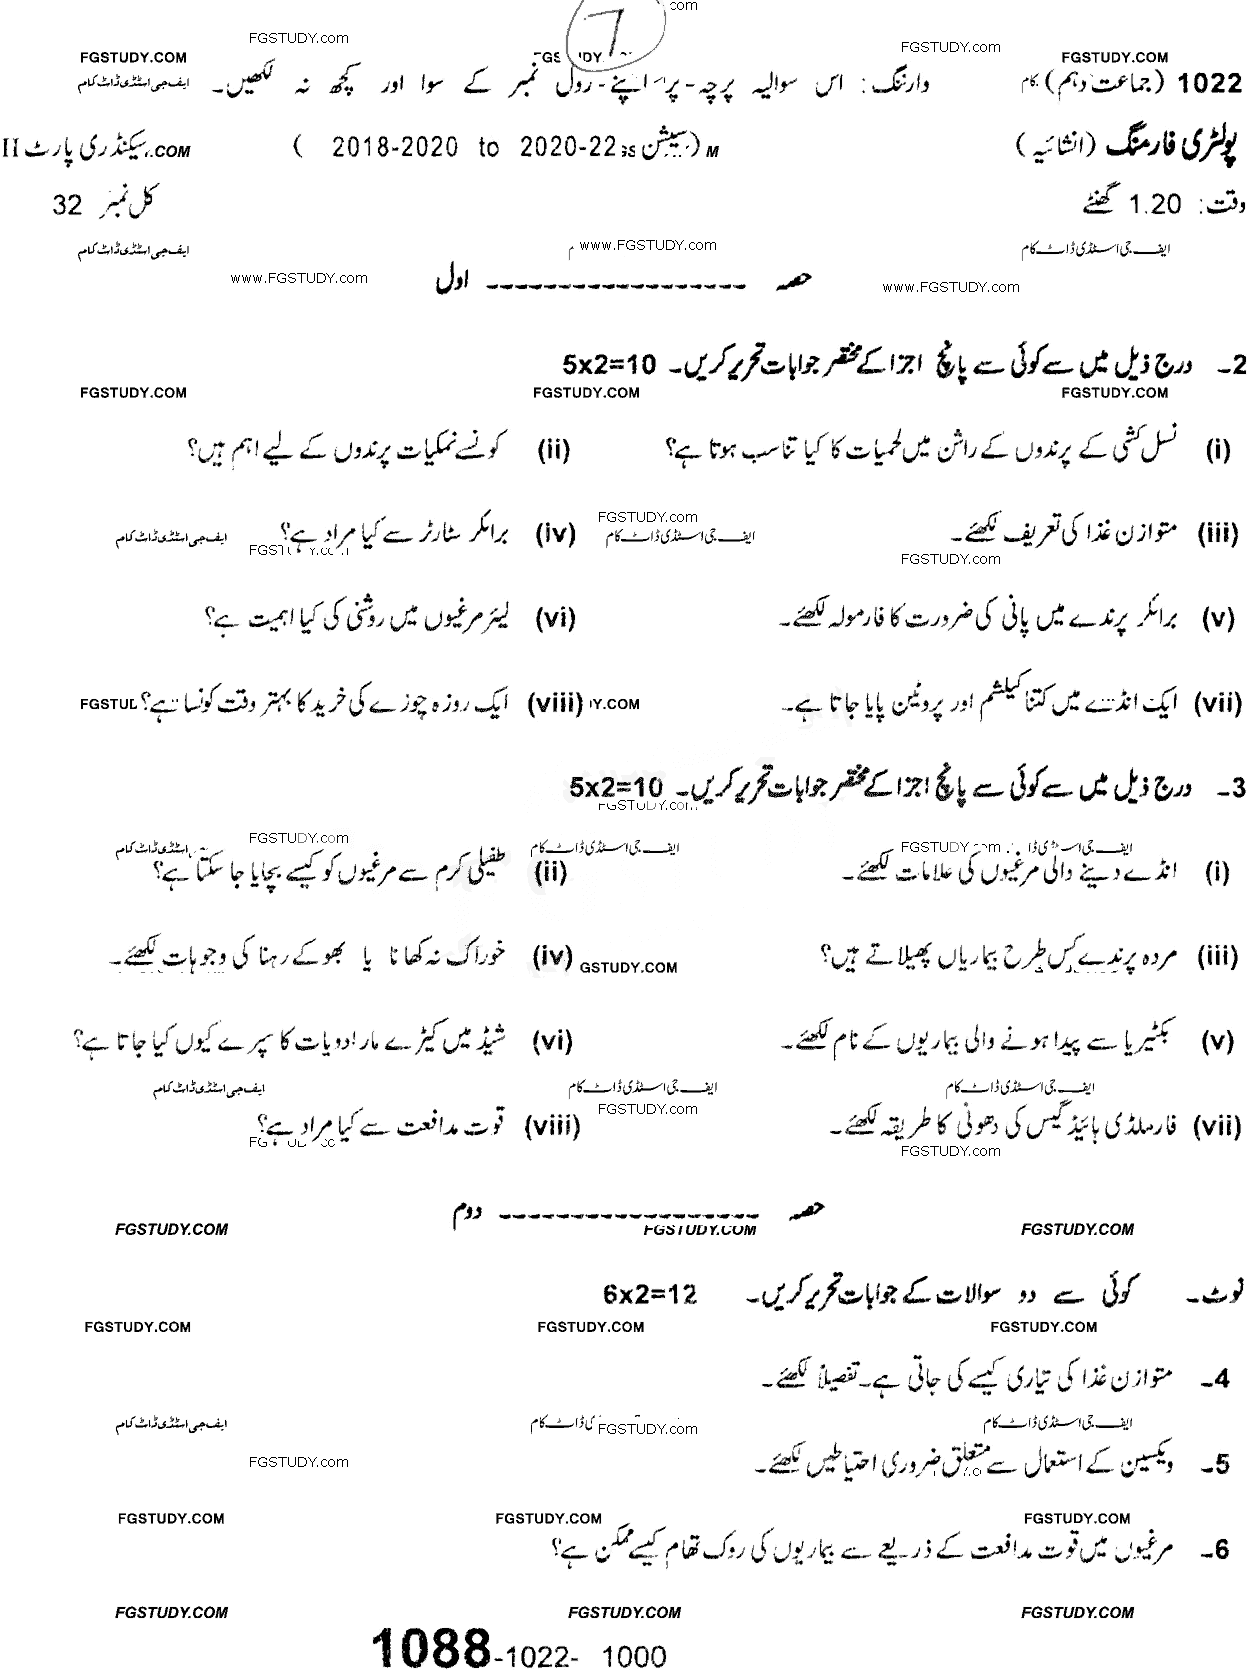 7 com
FGSTUDY.com FGSTUDY.com
FGSTUDY.COM FGSTUDY.COM
1022 (جماعت دہم) کام وارننگ: اس سوالیہ پرچہ پر اپنے رول نمبر کے سوا اور کچھ نہ لکھیں۔ ایف جی اسٹڈی ڈاٹ کام
پولٹری فارمنگ (انشائیہ) (سیشن 2018-2020 to 2020-22) سیکنڈری پارٹ II
وقت: 1.20 گھنٹے کل نمبر 32
ایف جی اسٹڈی ڈاٹ کام www.FGSTUDY.com ایف جی اسٹڈی ڈاٹ کام
حصہ ------------------ اول
www.FGSTUDY.com www.FGSTUDY.com
2۔ درج ذیل میں سے کوئی سے پانچ اجزا کے مختصر جوابات تحریر کریں۔ 5x2=10
FGSTUDY.COM FGSTUDY.COM FGSTUDY.COM
(i) نسل کشی کے پرندوں کے راشن میں لحمیات کا کیا تناسب ہوتا ہے؟ (ii) کونسے نمکیات پرندوں کے لیے اہم ہیں؟
FGSTUDY.com
(iii) متوازن غذا کی تعریف لکھئے۔ ایف جی اسٹڈی ڈاٹ کام (iv) برائلر سٹارٹر سے کیا مراد ہے؟ ایف جی اسٹڈی ڈاٹ کام
FGSTUDY.com
(v) برائلر پرندے میں پانی کی ضرورت کا فارمولہ لکھئے۔ (vi) لیئر مرغیوں میں روشنی کی کیا اہمیت ہے؟
(vii) ایک انڈے میں کتنا کیلشم اور پروٹین پایا جاتا ہے۔ (viii) ایک روزہ چوزے کی خرید کا بہتر وقت کونسا ہے؟
3۔ درج ذیل میں سے کوئی سے پانچ اجزا کے مختصر جوابات تحریر کریں۔ 5x2=10
FGSTUDY.com
FGSTUDY.com
ایف جی اسٹڈی ڈاٹ کام
(i) انڈے دینے والی مرغیوں کی علامات لکھئے۔ (ii) طفیلی کرم سے مرغیوں کو کیسے بچایا جا سکتا ہے؟
(iii) مردہ پرندے کس طرح بیماریاں پھیلاتے ہیں؟ GSTUDY.COM (iv) خوراک نہ کھانا یا بھوکے رہنا کی وجوہات لکھئے۔
(v) بکٹیریا سے پیدا ہونے والی بیماریوں کے نام لکھئے۔ (vi) شیڈ میں کیڑے مار ادویات کا سپرے کیوں کیا جاتا ہے؟
ایف جی اسٹڈی ڈاٹ کام ایف جی اسٹڈی ڈاٹ کام ایف جی اسٹڈی ڈاٹ کام
FGSTUDY.com
(vii) فارملڈی ہائیڈ گیس کی دھونی کا طریقہ لکھئے۔ (viii) قوت مدافعت سے کیا مراد ہے؟
FGSTUDY.com
حصہ ------------------ دوم
FGSTUDY.COM FGSTUDY.COM FGSTUDY.COM
نوٹ۔ کوئی سے دو سوالات کے جوابات تحریر کریں۔ 6x2=12
FGSTUDY.COM FGSTUDY.COM FGSTUDY.COM
4۔ متوازن غذا کی تیاری کیسے کی جاتی ہے۔ تفصیلاً لکھئے۔
ایف جی اسٹڈی ڈاٹ کام FGSTUDY.com ایف جی اسٹڈی ڈاٹ کام
5۔ ویکسین کے استعمال سے متعلق ضروری احتیاطیں لکھئے۔
FGSTUDY.com
FGSTUDY.COM FGSTUDY.COM FGSTUDY.COM
6۔ مرغیوں میں قوت مدافعت کے ذریعے سے بیماریوں کی روک تھام کیسے ممکن ہے؟
FGSTUDY.COM FGSTUDY.COM FGSTUDY.COM
1088-1022- 1000